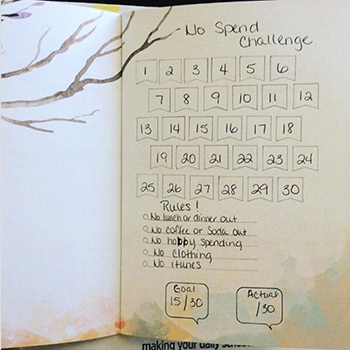 No Spend
Challenge
1 2 3 4 5 6
7 8 9 10 11 12
13 14 15 16 17 18
19 20 21 22 23 24
25 26 27 28 29 30
Rules!
No lunch or dinner out
No coffee or Soda out
No hobby spending
No clothing
No itunes
Goal Actual
15/30 /30
making your daily